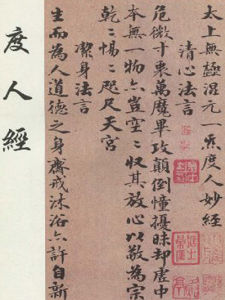 太上無極混元一炁度人妙經
清心法言
危微十衷萬魔畢攻顛倒憧擾昧却虛中
本無一物六豈空二収其放心以敬為宗
乾二惕二咫尺天宮
潔身法言
生而為人道德之身齋戒沐浴六許自新
度人經